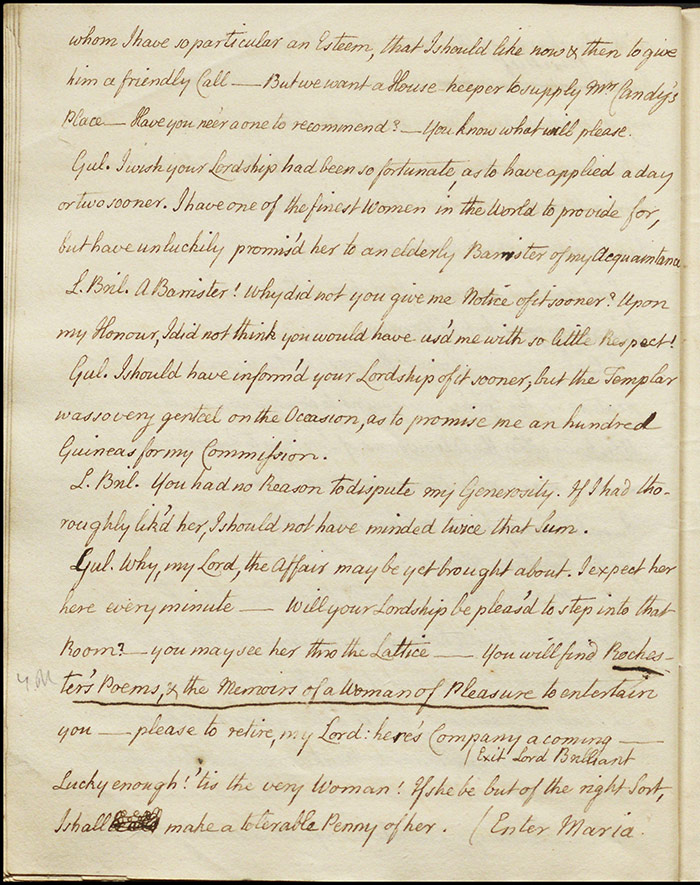 whom I have so particular an Esteem, that I should like now & then to give
him a friendly Call — But we want a House keeper to supply Mrs Candy's
Place — Have you ne'er a one to recommend? — You know what will please.
Gul. I wish your Lordship had been so fortunate, as to have applied a day
or two sooner. I have one of the finest Women in the World to provide for,
but have unluckily promis'd her to an elderly Barrister of my Acquaintance
L. Bril. A Barrister! Why did not you give me Notice of it sooner? Upon
my Honour, I did not think you would have us'd me with so little Respect!
Gul. I should have inform'd your Lordship of it sooner, but the Templar
was so very genteel on the Occasion, as to promise me an hundred
Guineas for my Commission.
L. Bril. You had no Reason to dispute my Generosity. If I had tho-
roughly lik'd her, I should not have minded twice that Sum.
Gul. Why, my Lord, the Affair may be yet brought about. I expect her
here every minute — Will your Lordship be pleas'd to step into that
Room? — you may see her thro the Lattice — You will find Roches-
ter's Poems, & the Memoirs of a Woman of Pleasure to entertain
you — please to retire, my Lord: here's Company a coming —
(Exit Lord Brilliant
Lucky enough! 'tis the very Woman! If she be but of the right Sort,
I shall make a tolerable Penny of her. (Enter Maria.